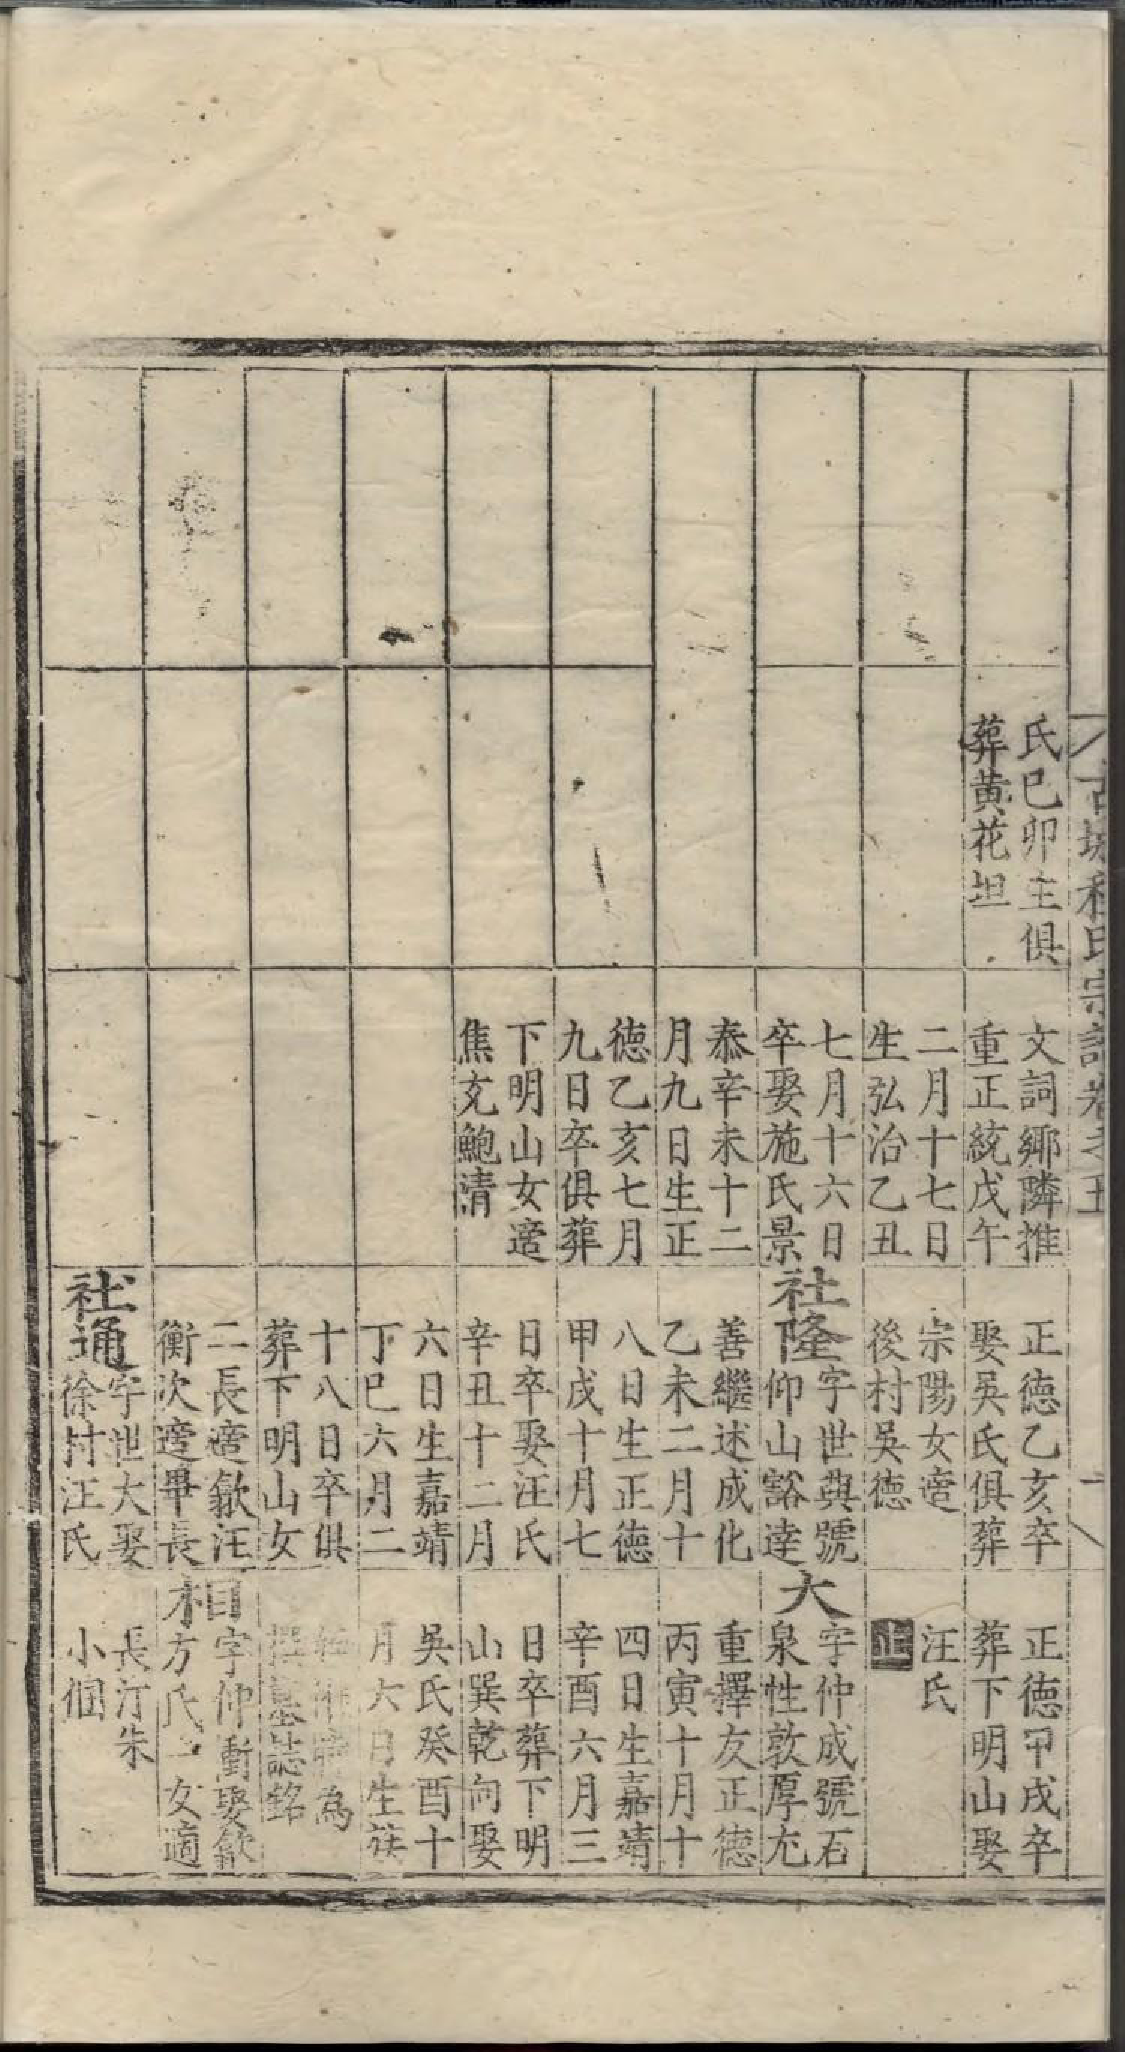 古城程氏宗譜卷之五
氏巳卯主俱
葬黄花坦
文詞鄉隣推
重正統戊午
二月十七日
生弘治乙丑
七月十六日
卒娶施氏景
泰辛未十二
月九日生正
德乙亥七月
九日卒俱葬
下明山女適
焦充鮑清
正德乙亥卒
娶吳氏俱葬
宗陽女適
後村吳德
社隆
字世興號
仰山豁達
善繼述成化
乙未二月十
八日生正德
甲戌十月七
日卒娶汪氏
辛丑十二月
六日生嘉靖
丁巳六月二
十八日卒俱
葬下明山女
二長適歙汪
衡次適畢長
社通
字世大娶
徐村汪氏
正德甲戌卒
葬下明山娶
汪氏
正
大
字仲成號石
泉性敦厚尤
重擇友正德
丙寅十月十
四日生嘉靖
辛酉六月三
日卒葬下明
山巽乾向娶
吳氏癸酉十
月六日生族
為
撰墓誌銘
相
字仲衝娶歙
方氏一女適
長汀朱
小個